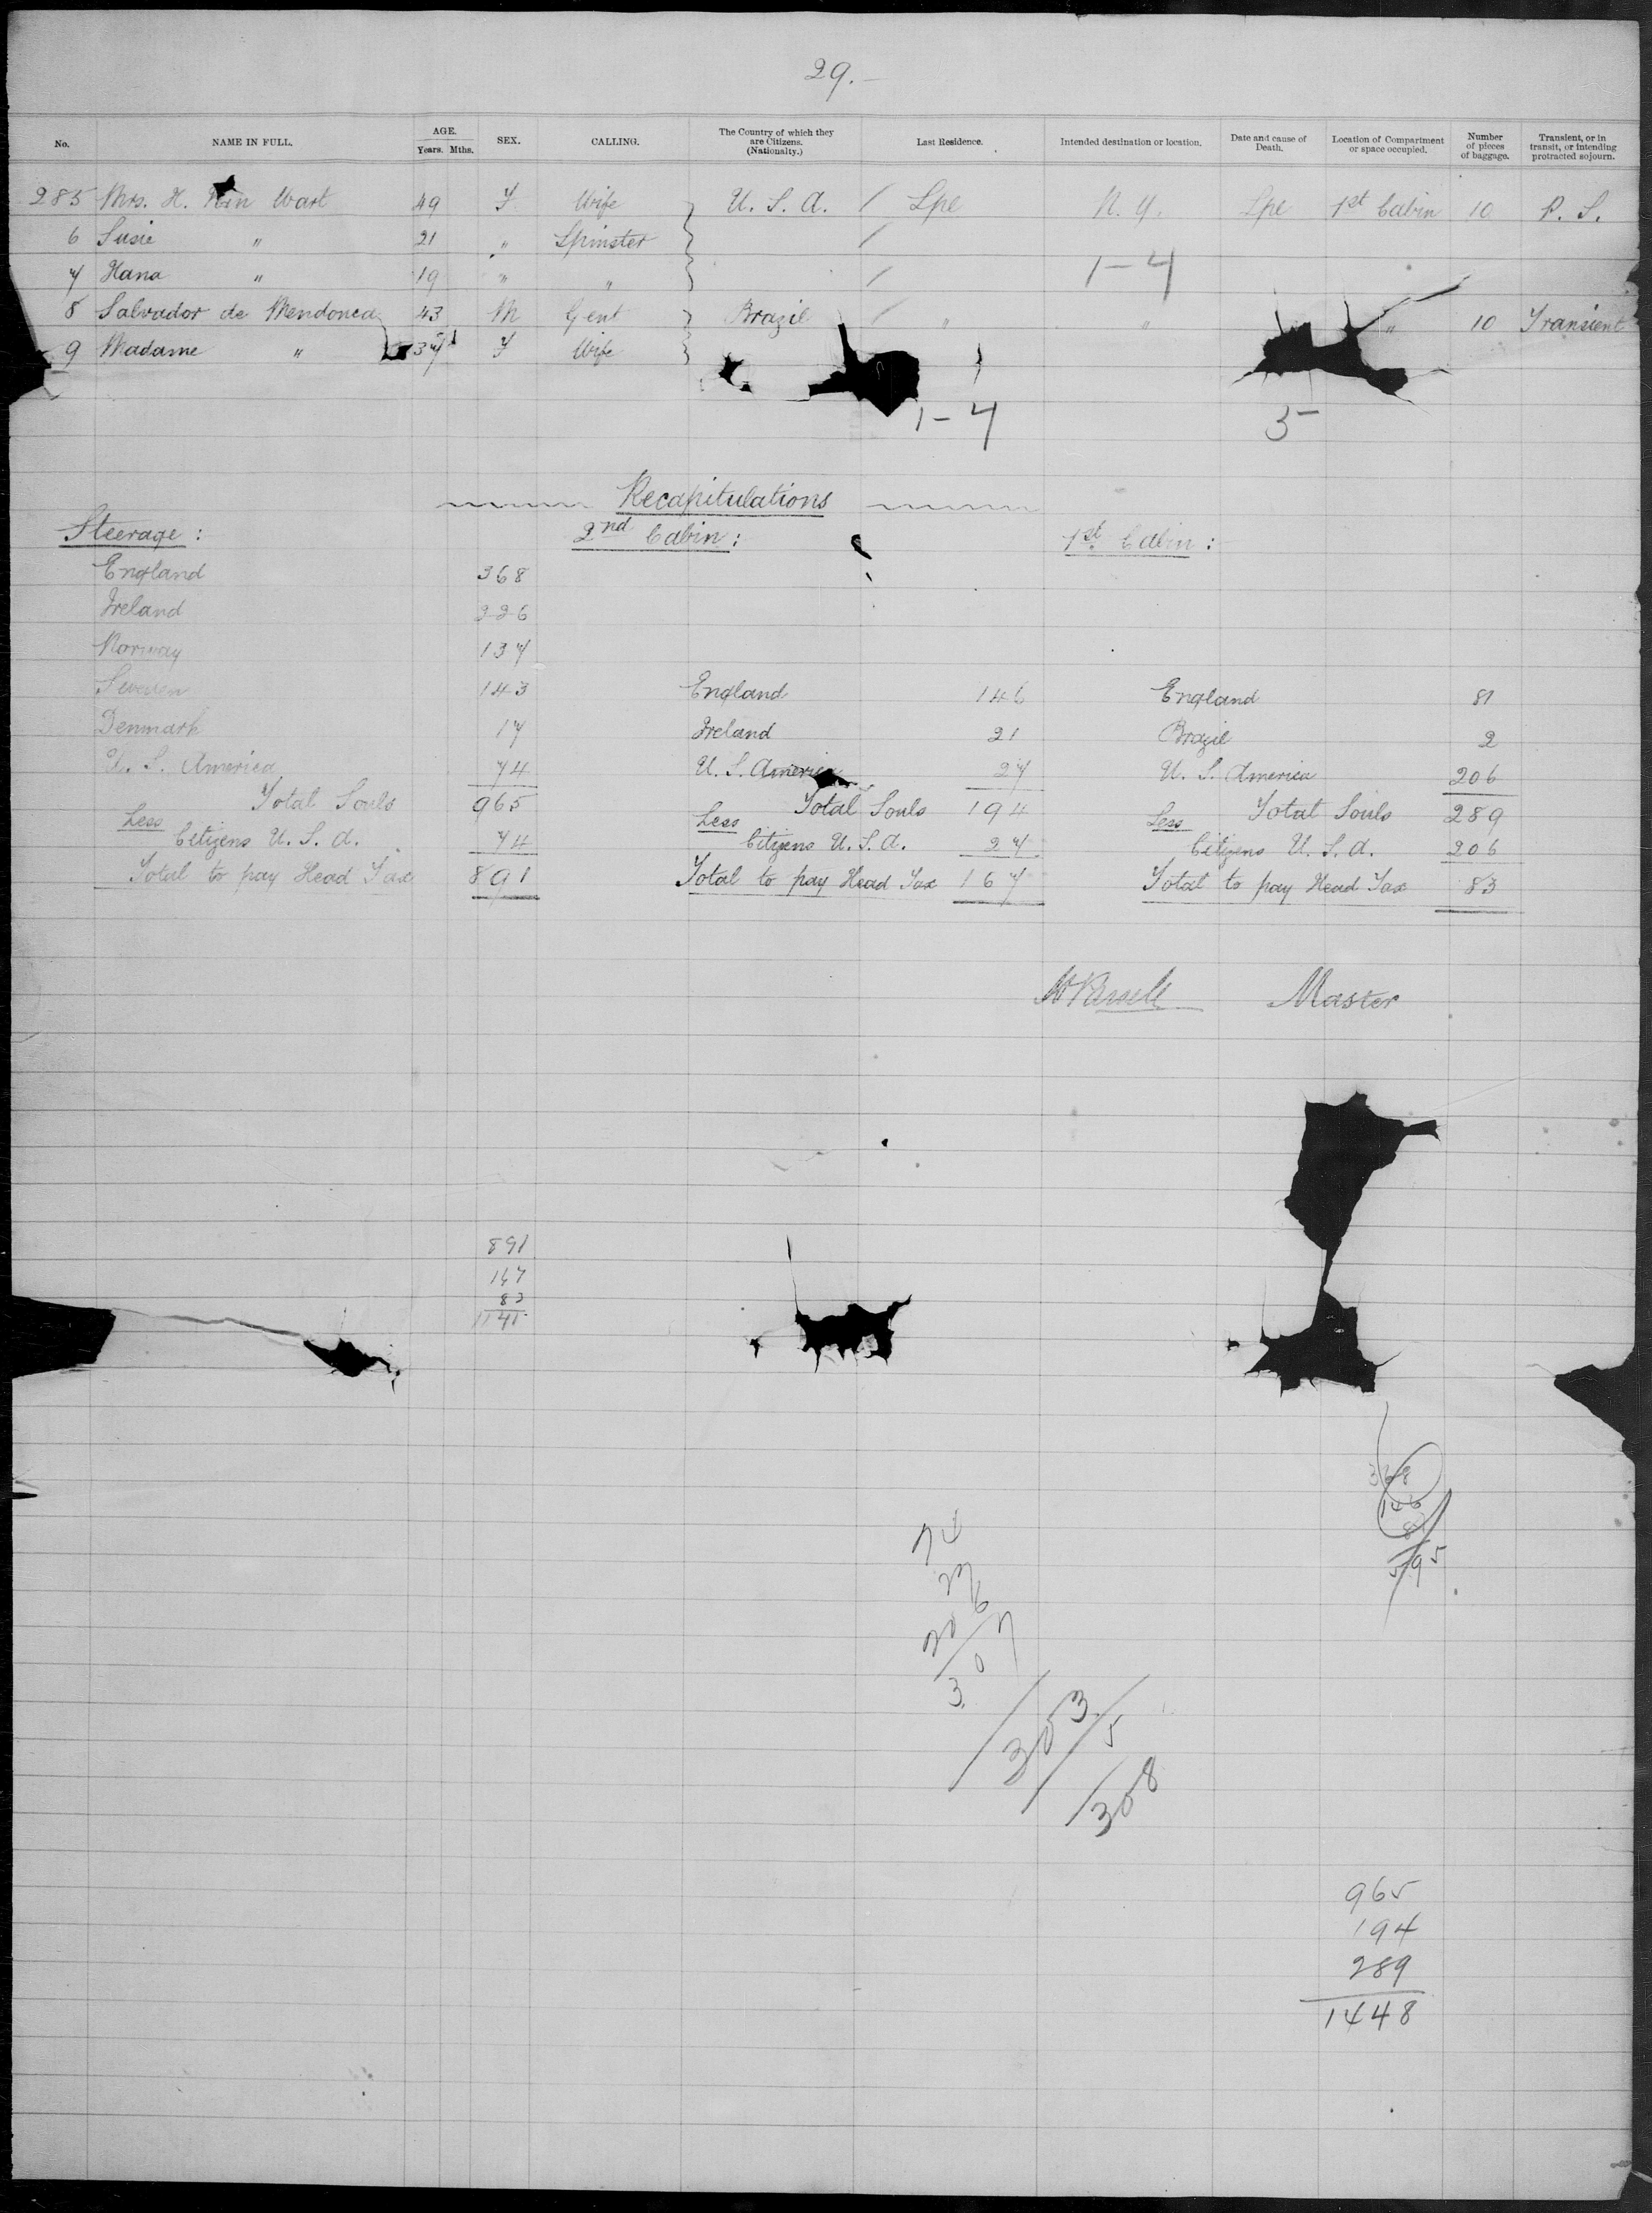 29.
No. NAME IN FULL. AGE. Years. Mths. SEX. CALLING. The Country of which they are Citizens. (Nationalty.) Last Residence. Intended destination or location. Date and cause of Death. Location of Compartment or space occupied. Number of pieces of baggage. Transient, or in transit, or intending protracted sojourn.
285 Mrs. H. Wart 49 F Wife U. S. A. / Lpe N. Y. Lpe 1st Cabin 10 P. S.
6 Susie " 21 " Spinster /
7 Hana " 19 " " / 1-4
8 Salvador de Mendonca 43 M Gent Brazil / " " " 10 Transient
9 Madame " 37 F Wife
1-4 5
Recapitulations
Steerage: 2nd Cabin: 1st Cabin:
England 368
Ireland 226
Norway 137
Sweden 143 England 146 England 81
Denmark 17 Ireland 21 Brazil 2
U. S. America 74 U. S. America 27 U. S. America 206
Total Souls 965 Total Souls 194 Total Souls 289
Less Citizens U. S. A. 74 Less Citizens U. S. A. 27 Less Citizens U. S. A. 206
Total to pay Head Tax 891 Total to pay Head Tax 167 Total to pay Head Tax 83
Master
891
167
83
1141
368
146
81
595
74
27
206
307
303
5
308
965
194
289
1448